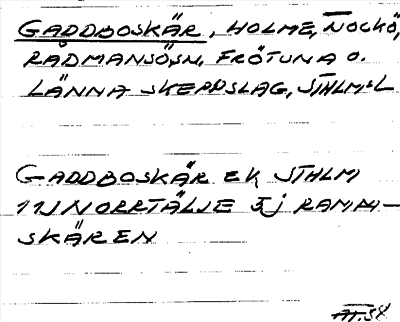 GADDBOSKÄR, HOLME, NOCKÖ,
RÅDMANSÖSN, FRÖTUNA O.
LÄNNA SKEPPSLAG, STHLMS L
GADDBOSKÄR EK STHLM
11J NORRTÄLJE 5j RAMM-
SKÄREN